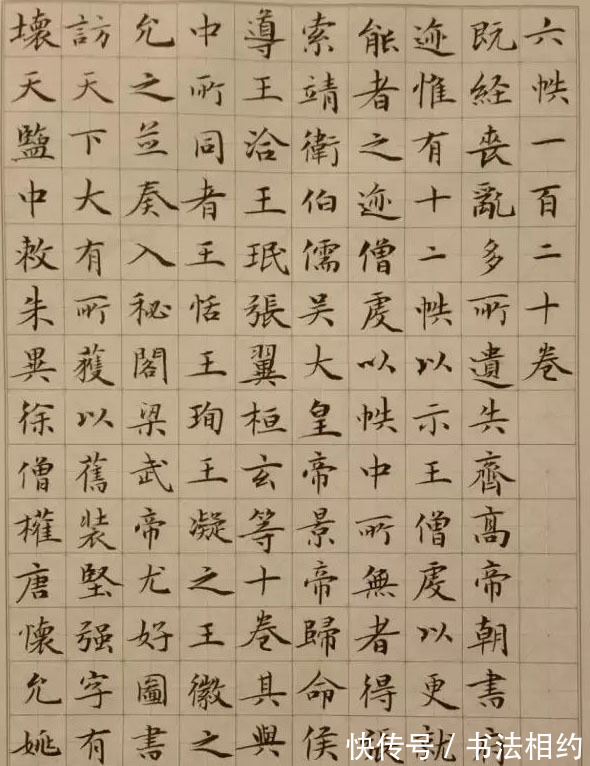 六帙一百二十卷
既経喪亂多所遺失齊高帝朝書
迹惟有十二帙以示王僧虔以更就
能者之迹僧虔以帙中所無者得
索靖衛伯儒吴大皇帝景帝歸命侯
導王洽王珉張翼桓玄等十卷其與
中所同者王恬王珣王凝之王徽之
允之並奏入秘閣梁武帝尤好圖書
訪天下大有所獲以舊装堅强字有
壞天監中敕朱異徐僧權唐懷允姚
快传号 / 书法相约